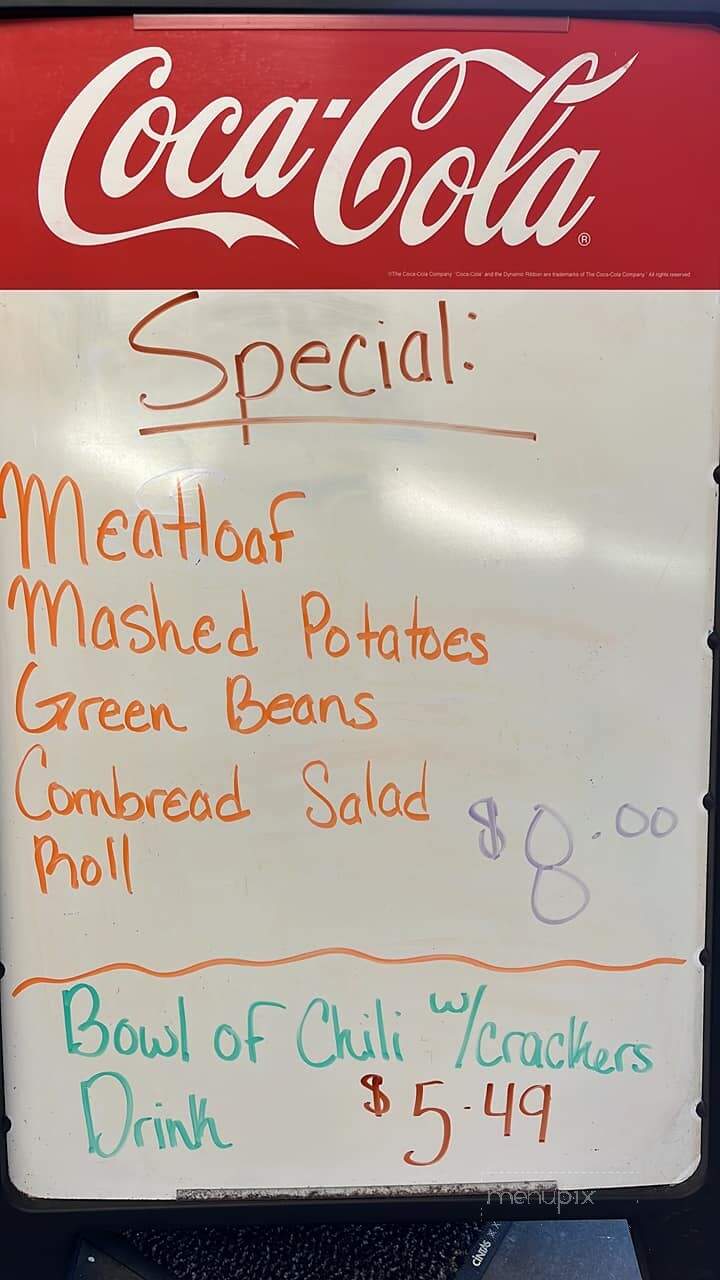 Coca-Cola®
©The Coca-Cola Company "Coca-Cola" and the Dynamic Ribbon are trademarks of The Coca-Cola Company. All rights reserved
Special:
Meatloaf
Mashed Potatoes
Green Beans
Cornbread Salad
Roll
$8.00
Bowl of Chili w/crackers
Drink $5.49
menupix
CINTAS